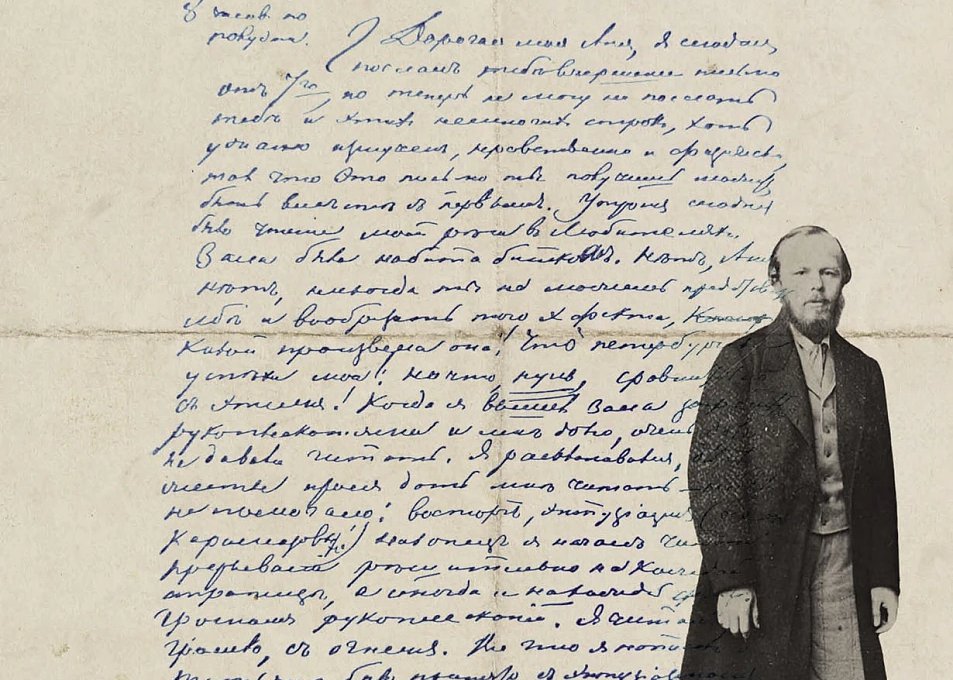 8 часов по
полудни.
Дорогая моя Аня, я сегодня
послалъ тебѣ вчерашнее письмо
отъ 7го, но теперь не могу не послать
тебѣ и этихъ немногихъ строкъ, хоть
ужасно измученъ, нравственно и физически,
такъ что это письмо ты получишь можетъ
быть вмѣстѣ съ первымъ. Утромъ сегодня
было чтеніе моей рѣчи въ Любителяхъ.
Зала была набита биткомъ. Нѣтъ, Аня
нѣтъ, никогда ты не можешь представить
себѣ и вообразить того эфекта,
какой произвела она! Что петербургскіе
успѣхи мои! ничто, нуль, сравнительно
съ этимъ! Когда я вышелъ, зала загремѣла
рукоплесканіями и мнѣ долго, очень
не давали читать. Я раскланивался,
жесты прося дать мнѣ читать —
не помогало: восторгъ, энтузіазмъ (
Карамазовы!) наконецъ я началъ читать
прерывали рѣшительно на каждой
страницѣ, а иногда и на каждой фразѣ
громомъ рукоплесканій. Я читалъ
громко, съ огнемъ. Все что я написалъ
было принято съ энтузіазмомъ